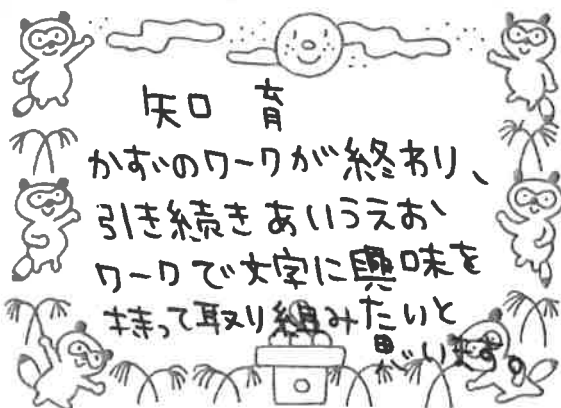 知 育
かずのワークが終わり、
引き続きあいうえお
ワークで文字に興味を
持って取り組みたいと
います。